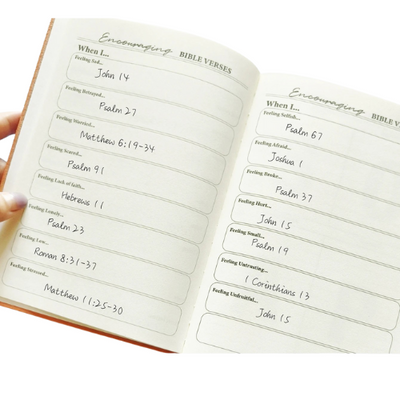 Encouraging BIBLE VERSES
When I...
Feeling Sad...
John 14
Feeling Betrayed...
Psalm 27
Feeling Worried...
Matthew 6:19-34
Feeling Scared...
Psalm 91
Feeling Lack of faith...
Hebrews 11
Feeling Lonely...
Psalm 23
Feeling Low...
Roman 8:31-37
Feeling Stressed...
Matthew 11:25-30
Encouraging BIBLE V
When I...
Feeling Selfish...
Psalm 67
Feeling Afraid...
Joshua 1
Feeling Broke...
Psalm 37
Feeling Hurt...
John 15
Feeling Small...
Psalm 19
Feeling Untrusting...
1 Corinthians 13
Feeling Unfruitful...
John 15